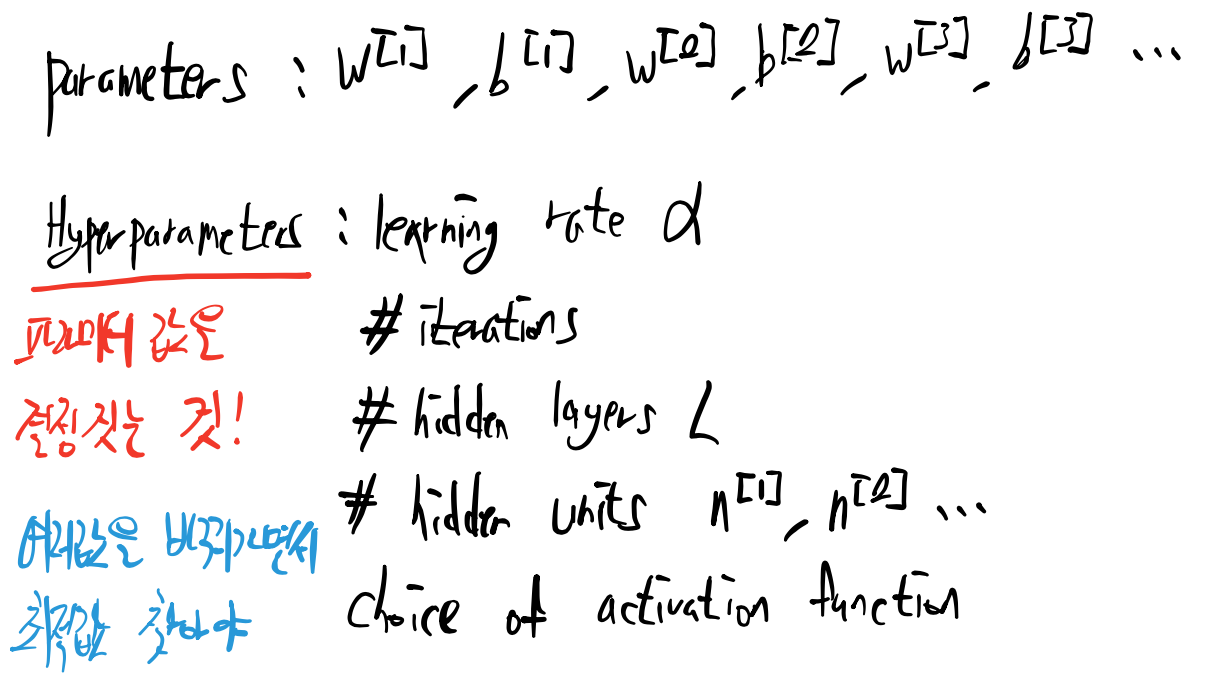 parameters : W[1], b[1], W[2], b[2], W[3], b[3] ...
Hyperparameters : learning rate α
파라미터 값을
결정짓는 것!
# iterations
# hidden layers L
# hidden units n[1], n[2] ...
choice of activation function
여러값을 바꿔가면서
최적값 찾아야